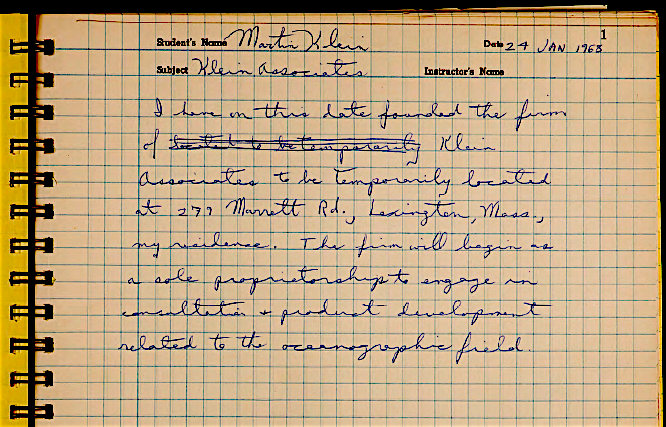 1
Student's Name Martin Klein Date 24 JAN 1968
Subject Klein Associates Instructor's Name
I have on this date founded the firm
of located to be temporarily Klein
Associates to be temporarily located
at 277 Marrett Rd., Lexington, Mass.,
my residence. The firm will begin as
a sole proprietorship to engage in
consultation + product development
related to the oceanographic field.